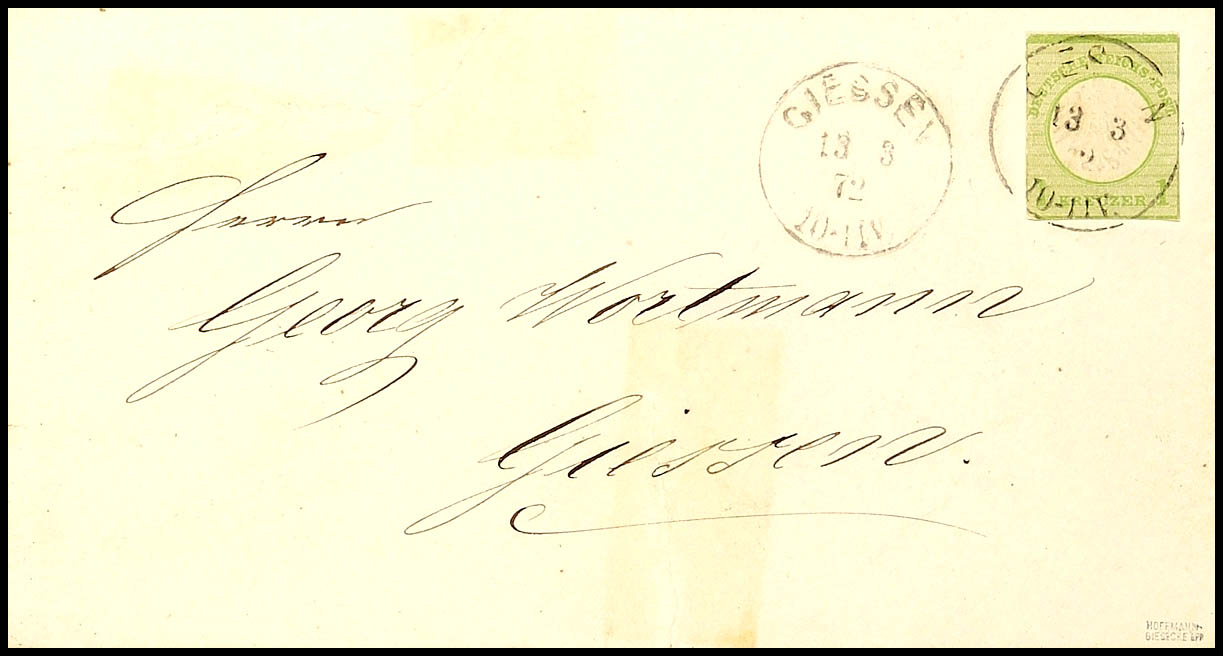 GIESSEN
13 3
72
10-11V.
DEUTSCHE REICHS-POST
13 3
10-11V.
1 KREUZER 1
Herrn
Georg Wortmann
Giessen.
HOFFMANN-
GIESECKE BPP